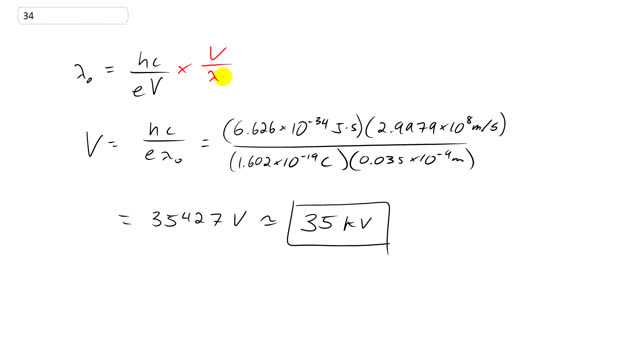 34
λ₀ = hc / eV × V / λ
V = hc / eλ₀ = (6.626×10⁻³⁴ J·s)(2.9979×10⁸ m/s) / (1.602×10⁻¹⁹ C)(0.035×10⁻⁹ m)
= 35427 V ≃ 35 kV